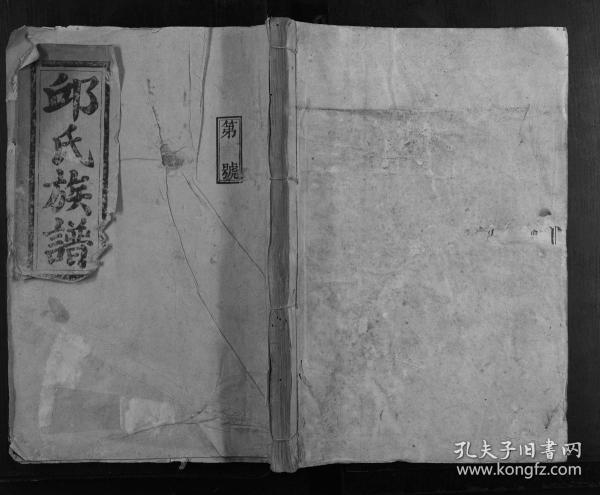 邱氏族譜
第 號
孔夫子旧書网
www.kongfz.com